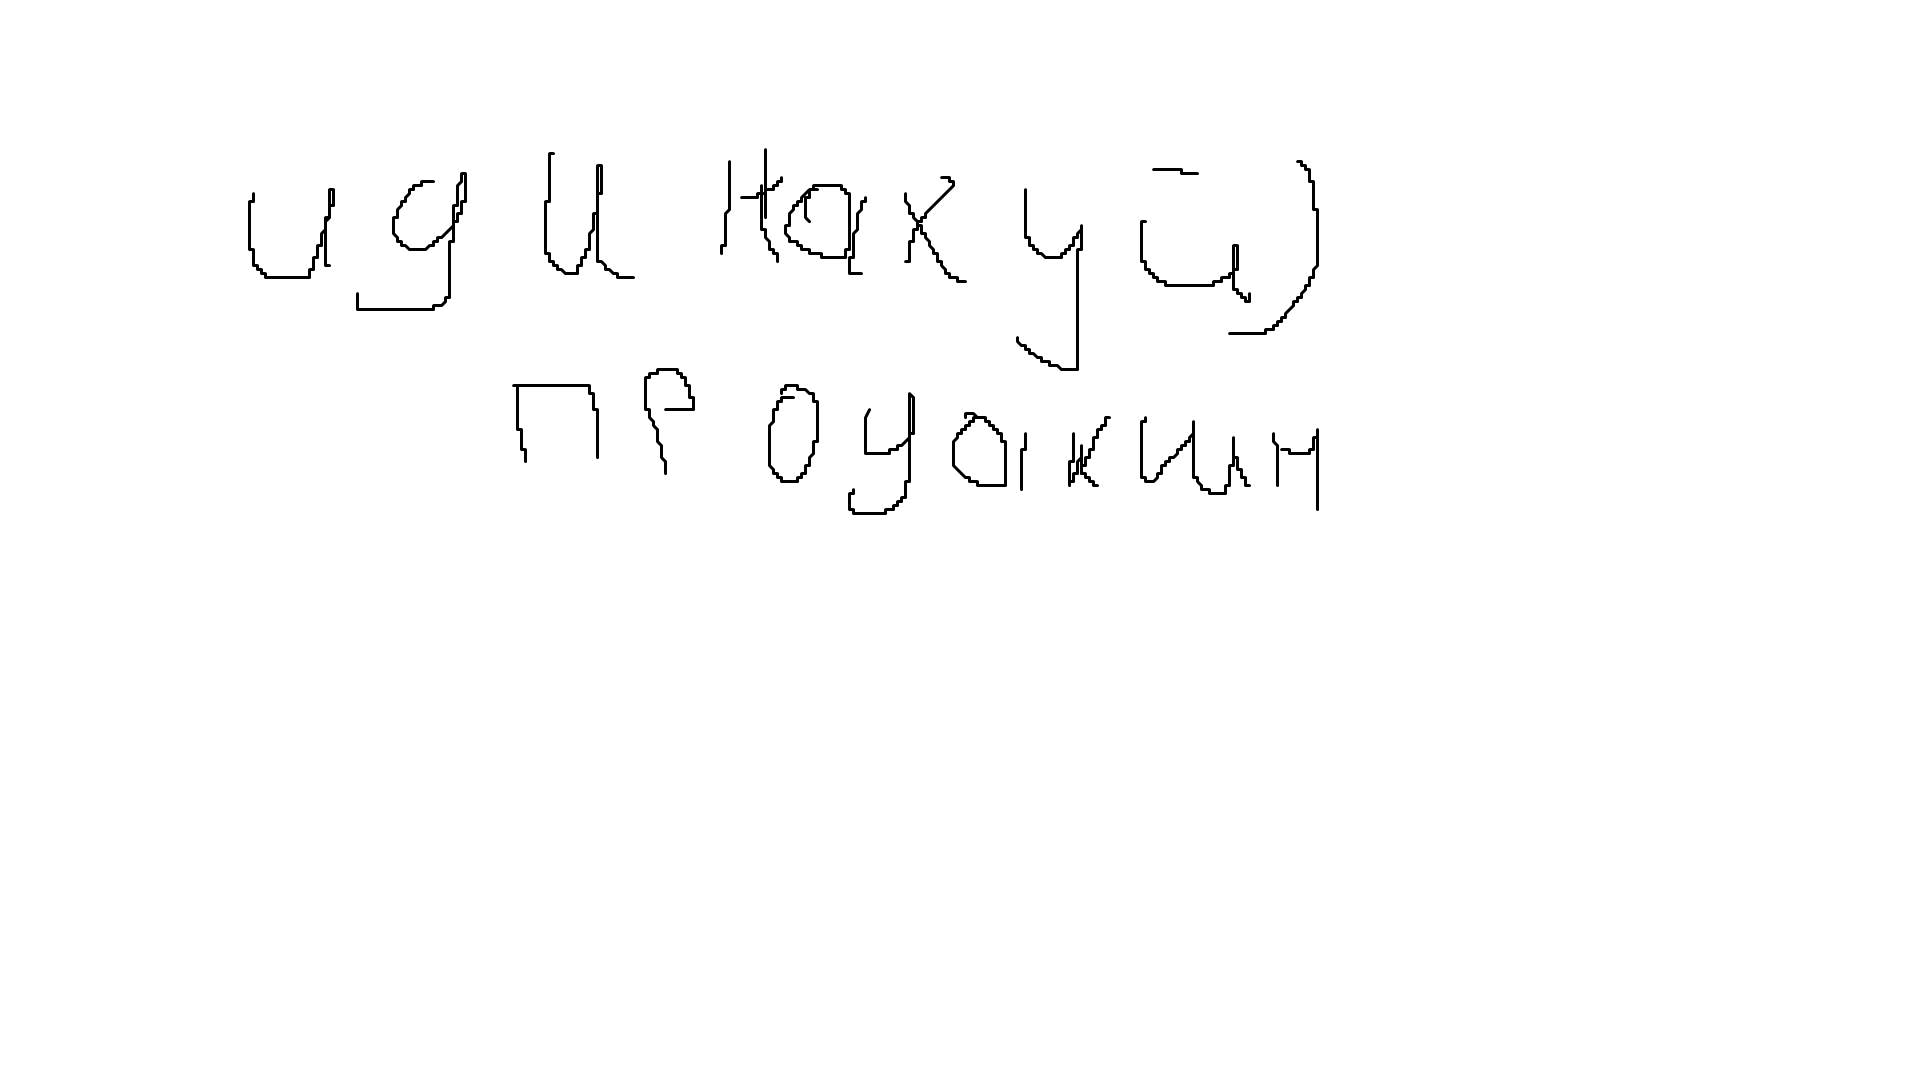 иди нахуй)
проуакин